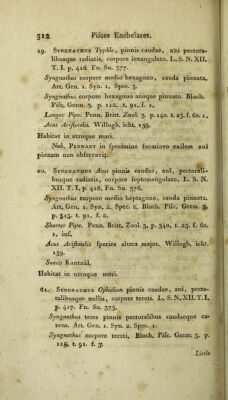 312 Pisces Enchelares.
19. SYNGNATHUS Typhle, pinnis caudae, ani pectora-
libusque radiatis, corpore sexangulato. L. S. N. XII.
T. I. p. 416. Fn. Su. 377.
Syngnathus corpore medio hexagono, cauda pinnata.
Art. Gen. 1. Syn. 1. Spec. 3.
Syngnathus corpore hexagono anoque pinnato. Bloch.
Fisch. Germ. 3. p. 112. t. 91. f. 1.
Longer Pipe. Penn. Britt. Zool. 3. p. 140. t. 23. f. 60. 1.
Acus Aristotelis. Willugh. icht. 158.
Habitat in utroque mari.
Nob. PENNANT in specimine foemineo eadem ani
pinnam non observavit.
20. SYNGNATHUS Acus pinnis caudae, ani, pectorali-
busque radiatis, corpore septemangulato, L. S. N.
XII. T. I, p. 416. Fn. Su. 376.
Syngnathus corpore medio heptagono, cauda pinnata.
Art. Gen. 1. Syn. 2. Spec. 2. Bloch. Pisc. Germ. 3.
p. 313. t. 91. f. 2.
Shorter Pipe. Penn. Britt. Zool. 3. p. 340. t. 23. f. 60.
1. inf.
Acus Aristotelis species altera major. Willugh. icht.
159.
Suecis Kantnål.
Habitat in utroque mari.
21. SYNGNATHUS Ophidion pinnis caudae, ani, pecto-
ralibusque nullis, corpore tereti. L. S. N. XII. T. I.
p. 417. Fn. Su. 375.
Syngnathus teres pinnis pectoralibus caudaeque ca-
rens. Art. Gen. 1. Syn. 2. Spec. 1.
Syngnathus corpore tereti, Bloch. Pisc. Germ. 3. p.
115. t. 91. f. 3.
Little